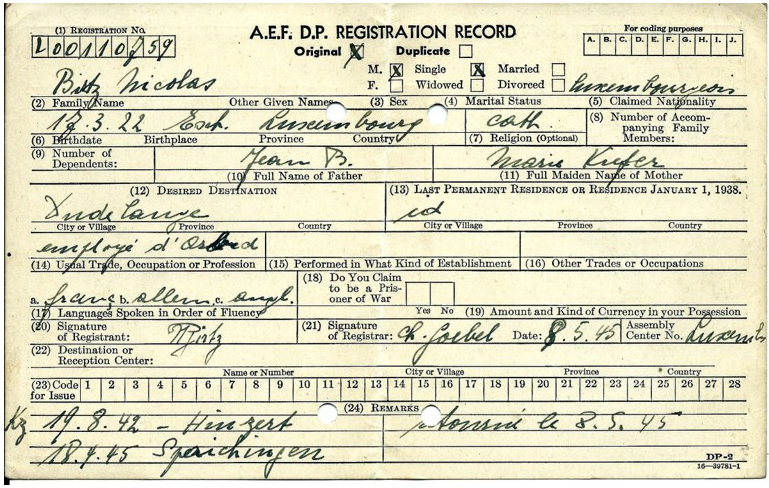 (1) REGISTRATION NO.
A.E.F. D.P. REGISTRATION RECORD
For coding purposes
Original X Duplicate
A. B. C. D. E. F. G. H. I. J.
M. X Single X Married
F. Widowed Divorced
Nicolas Luxembourgeois
(2) Family Name Other Given Names (3) Sex (4) Marital Status (5) Claimed Nationality
3.22 Esch. Luxembourg cath
(6) Birthdate Birthplace Province Country (7) Religion (Optional) (8) Number of Accompanying Family Members:
(9) Number of Dependents: Jean B. Marie Kiefer
(10) Full Name of Father (11) Full Maiden Name of Mother
(12) DESIRED DESTINATION (13) LAST PERMANENT RESIDENCE OR RESIDENCE JANUARY 1, 1938.
Dudelange id
City or Village Province Country City or Village Province Country
employé d'Arbed
(14) Usual Trade, Occupation or Profession (15) Performed in What Kind of Establishment (16) Other Trades or Occupations
(18) Do You Claim to be a Prisoner of War
a. franç b. allem. c. angl. Yes No
(17) Languages Spoken in Order of Fluency (19) Amount and Kind of Currency in your Possession
(20) Signature of Registrant: (21) Signature of Registrar: Ch. Goebel Date: 8.5.45 Assembly Center No. Luxemb
(22) Destination or Reception Center:
Name or Number City or Village Province Country
(23) Code for Issue 1 2 3 4 5 6 7 8 9 10 11 12 13 14 15 16 17 18 19 20 21 22 23 24 25 26 27 28
(24) REMARKS
Kz 19.8.42 – Hinzert le 8.5.45
18.4.45 Spaichingen
DP-2
16—39781-1